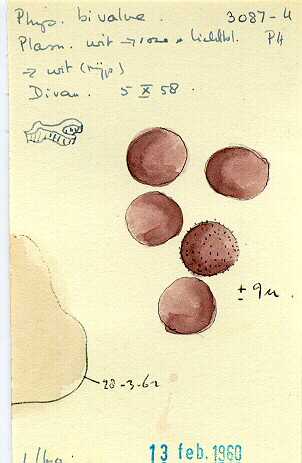 Phys. bivalve. 3087-4
Plasm. wit → rose + lichtbl. PH
→ wit (rijp)
Divan. 5 X 58.
± 9µ.
28-3-62
13 feb. 1960